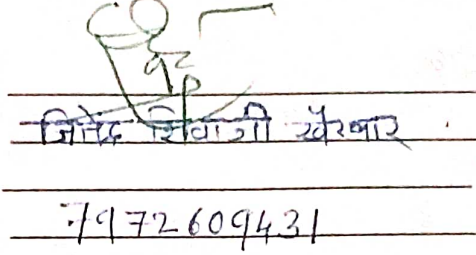 जितेंद्र शिवाजी खैरनार
7972609431